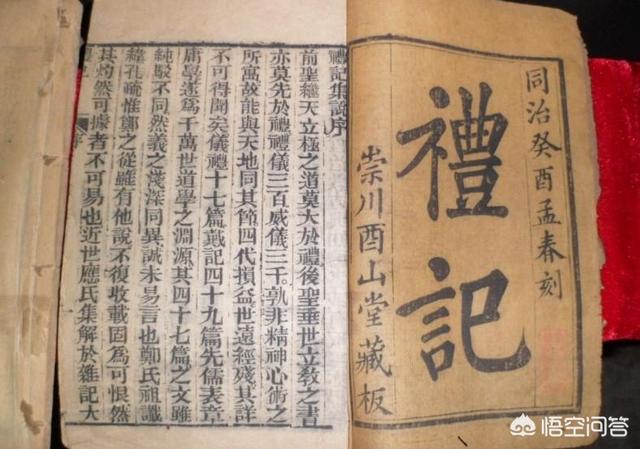 同治癸酉孟春刻
禮記
崇川酉山堂藏板
禮記集說序
前聖繼天立極之道莫大於禮後聖垂世立敎之書
亦莫先於禮禮儀三百威儀三千孰非精神心術之
所寓故能與天地同其節四代損益世遠經殘其詳
不可得聞矣儀禮十七篇戴記四十九篇先儒表章
庸學遂爲千萬世道學之淵源其四十七篇之文雖
純駁不同然義之淺深同異誠未易言也鄭氏祖讖
緯孔疏惟鄭之從雖有他說不復收載固爲可恨然
其灼然可據者不可易也近世應氏集解於雜記大
悟空问答